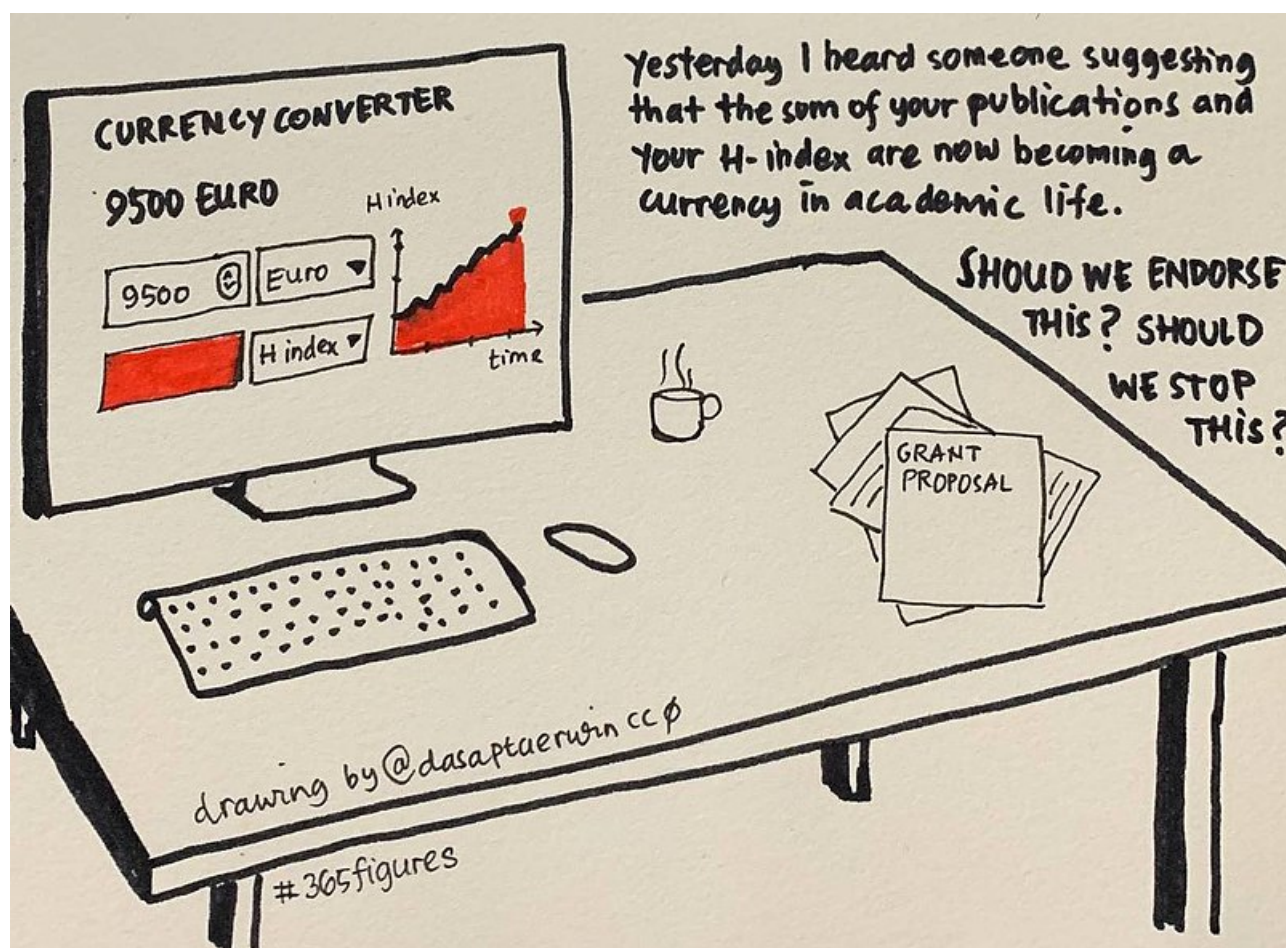 CURRENCY CONVERTER
9500 EURO
9500
Euro
H index
H index
time
Yesterday I heard someone suggesting
that the sum of your publications and
your H-index are now becoming a
currency in academic life.
SHOUD WE ENDORSE
THIS? SHOULD
WE STOP
THIS?
GRANT
PROPOSAL
drawing by @dasaptaerwin CC0
#365figures